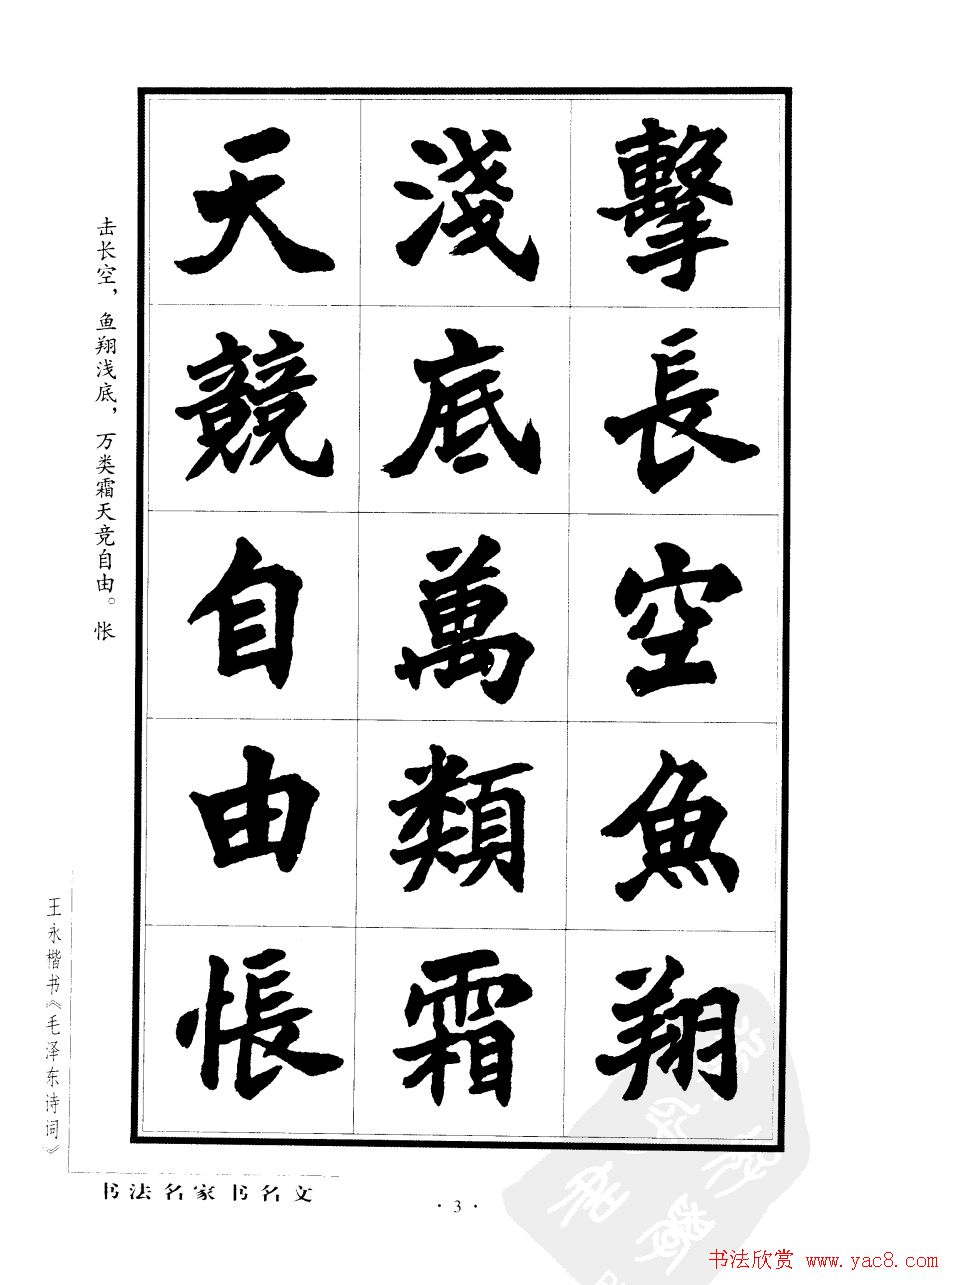 擊長空魚翔
淺底萬類霜
天競自由悵
击长空，鱼翔浅底，万类霜天竞自由。怅
王永楷书《毛泽东诗词》
书法名家书名文
·3·
书法欣赏 www.yac8.com